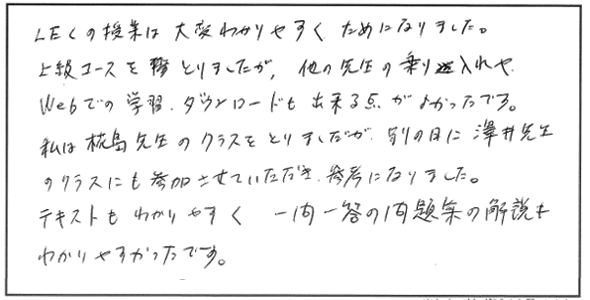 LECの授業は大変わかりやすくためになりました。
上級コースをとりましたが、他の先生の乗り入れや
Webでの学習、ダウンロードも出来る点がよかったです。
私は桃島先生のクラスをとりましたが、別の日に澤井先生
のクラスにも参加させていただき、参考になりました。
テキストもわかりやすく 一問一答の問題集の解説も
わかりやすかったです。